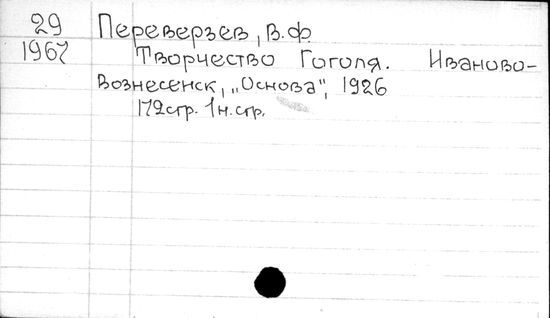 29 Переверзев, В.Ф
1967 Творчество Гоголя. Иваново-
Вознесенск, „Основа", 1926
172стр. 1н.стр.